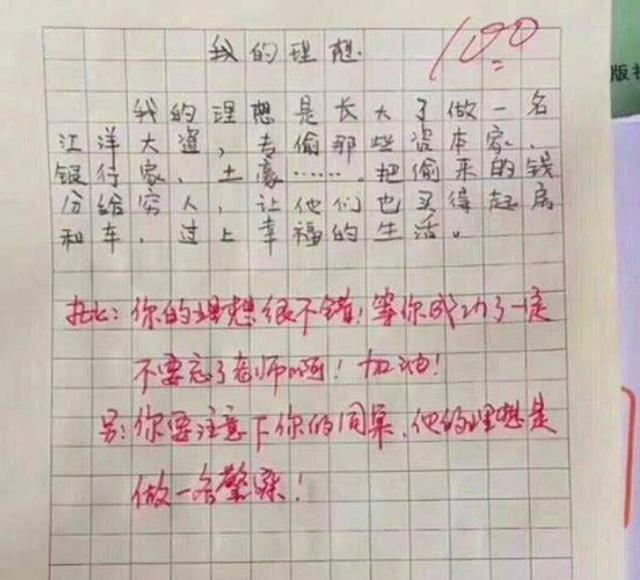 我的理想.
100
版社
我的理想是长大了做一名
江洋大道，专偷那些资本家、
银行家、土豪……，把偷来的钱
分给穷人，让他们也买得起房
和车，过上幸福的生活。
批:你的理想很不错!等你成功了一定
不要忘了老师啊!加油!
另:你要注意下你的同桌,他的理想是
做一名警察!